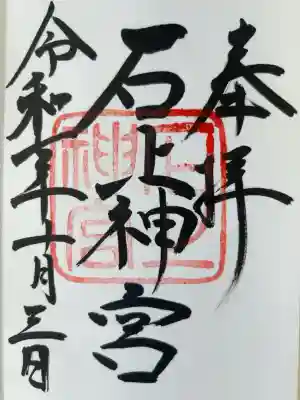 奉拝
石上神宮
令和元年十一月三日
石上
神宮